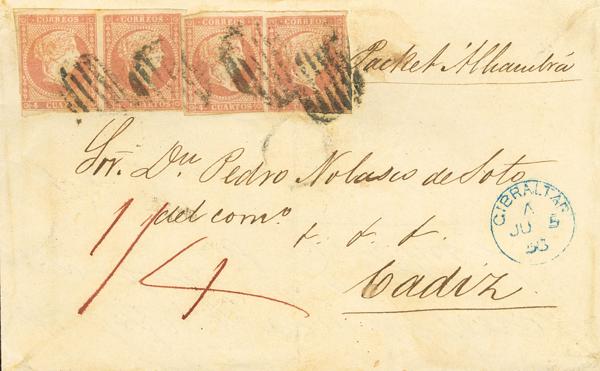 CORREOS CORREOS CORREOS CORREOS
4 CUARTOS CUARTOS 4 CUARTOS CUARTOS
Packet Alhambrá
Sor. Dn. Pedro Nolasco de Soto
del como.
&. &. &.
Cadiz.
1/4
GIBRALTAR
A
JU 5